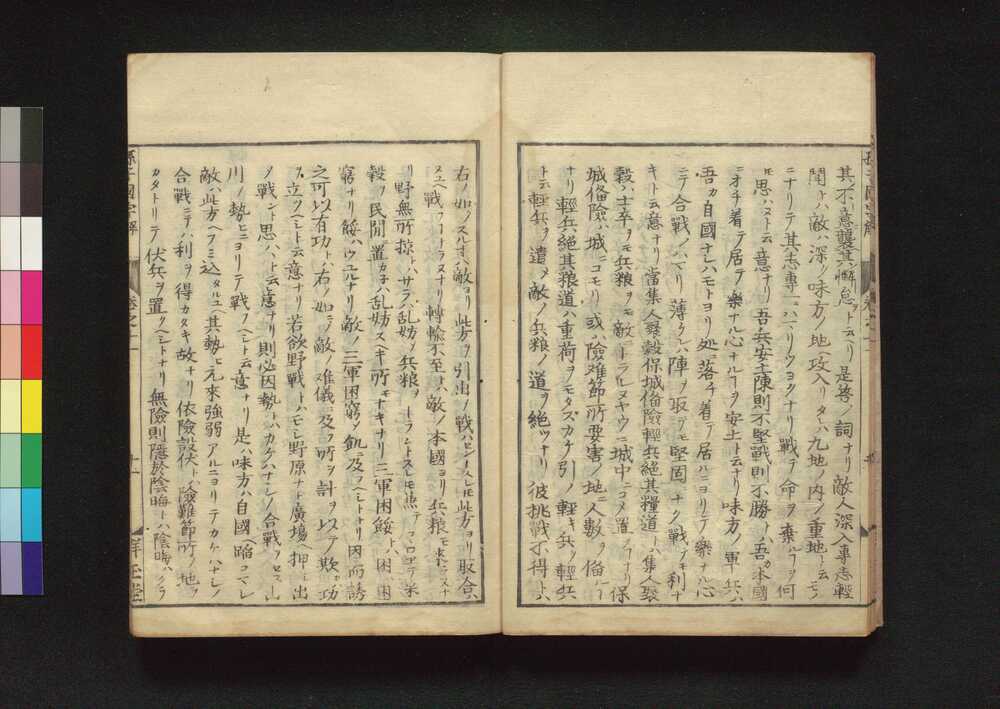 其不意襲其懈怠ト云ヘリ是答ノ詞ナリ敵人深入専志輕
鬪トハ敵ハ深ク味方ノ地ヘ攻入リタルハ九地ノ内ノ重地ト云モノ
ニナリテ其志専一ニハマリツヨクナリ戰テ命ヲ棄ルヿヲ何
トモ思ハヌト云意ナリ吾兵安土陳則不堅戰則不勝トハ吾カ本國
ニオチ着テ居テ樂ナル心ナルヿヲ安土ト云ナリ味方ノ軍兵ハ
吾カ自國ナレハモトヨリ処ニ落チ着テ居ルニヨリテ樂ナル心
ニテ合戰ノハマリ薄クシハ陣ヲ取テモ堅固ナク戰テモ利ナ
キト云意ナリ當集人聚穀保城備險輕兵絶其糧道トハ集人聚
穀ハ士卒ヲモ兵粮ヲモ敵ニトラレヌヤウニ城中ニコメ置クヿナリ保
城備險ハ城ニコモリ或ハ險難節所要害ノ地ニ人數ヲ備フ
ナリ輕兵絶其粮道ハ重荷ヲモタズカケ引ノ輕キ兵ヲ輕兵
ト云輕兵ヲ遣シ敵ノ兵粮ノ道ヲ絶ツナリ彼挑戰不得トハ
右ノ如クスル時敵ヨリ此方ヲ引出シ戰ハセントスレモ此方ヨリ取合ハ
ズ戰フヿナラヌナリ轉輸不至トハ敵ノ本國ヨリ兵粮モ來ラズ
野無所掠トハサラハ乱妨シ兵粮ヲトラントスレモ
穀ヲ民間ニ置カネハ乱妨スヘキ所モナキナリ三軍困餒トハ困ハ困
窮ナリ餒ハウユルナリ敵ノ三軍困窮シ飢ニ及フヘシトナリ因而誘
之可以有功トハ右ノ如クニシ敵ノ难儀ニ及フ所ヲ計ヲ以テ欺カハ功
ヲ立ツヘシト云意ナリ若欲野戰トハモシ野原ナト廣場ヘ押シ出
シ戰ハント思ハハト云意ナリ則必因勢トハカケハナレノ合戰ヲセス山
川ノ勢ニヨリテ戰フヘシト云意ナリ是ハ味方ハ自國ヘ踏コマレ
敵ハ此方ヘフミ込タルユヘ其勢ニ元來強弱アルニヨリテカケハナレノ
合戰ニテハ利ヲ得カタキ故ナリ依險設伏トハ險難節所ノ地ヲ
カタトリテ伏兵ヲ置クヘシトナリ無險則隱於陰晦トハ陰晦ハクラ